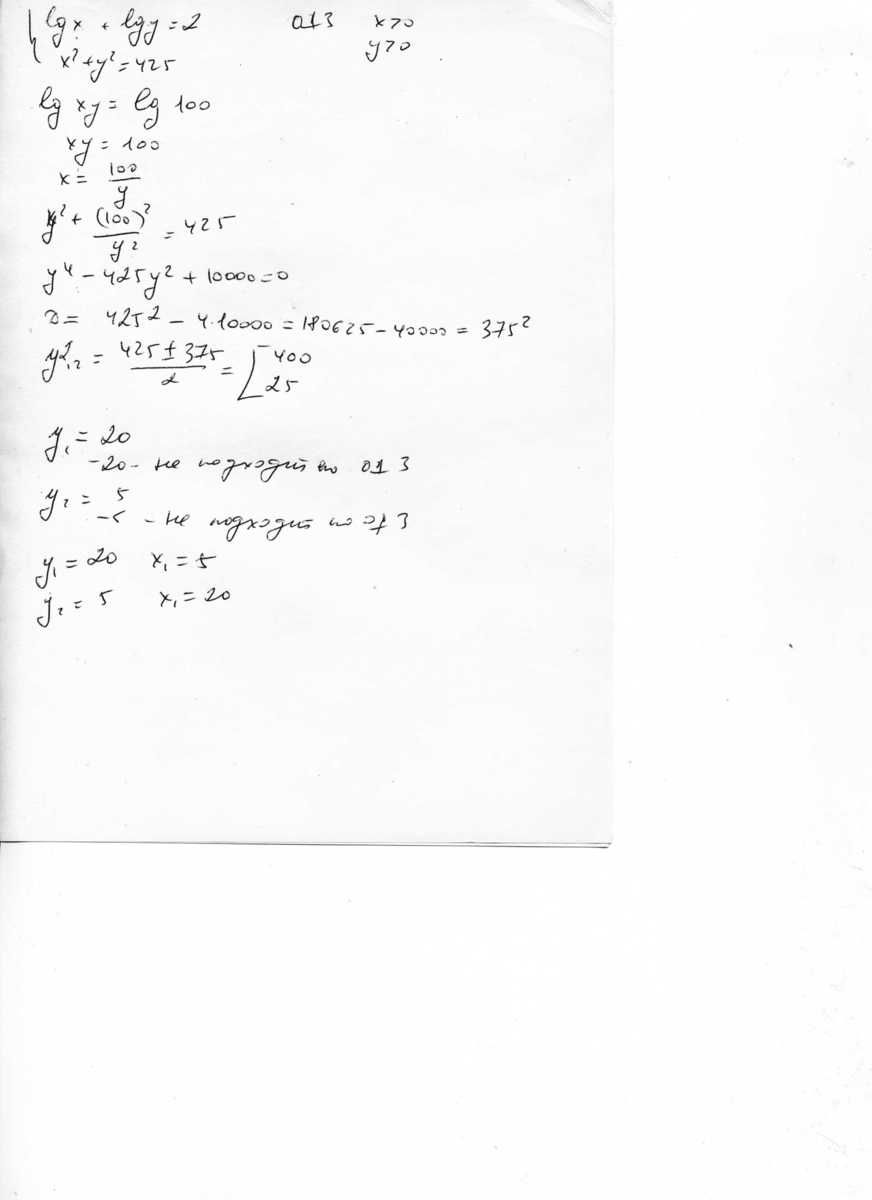 lg x + lg y = 2   ОДЗ   x>0
x² + y² = 425   y>0
lg xy = lg 100
xy = 100
x = 100/y
y² + (100)²/y² = 425
y⁴ - 425y² + 10000 = 0
D = 425² - 4·10000 = 180625 - 40000 = 375²
y²₁,₂ = (425 ± 375)/2 = [400
25
y₁ = 20
-20 - не подходит по ОДЗ
y₂ = 5
-5 - не подходит по ОДЗ
y₁ = 20   x₁ = 5
y₂ = 5   x₁ = 20